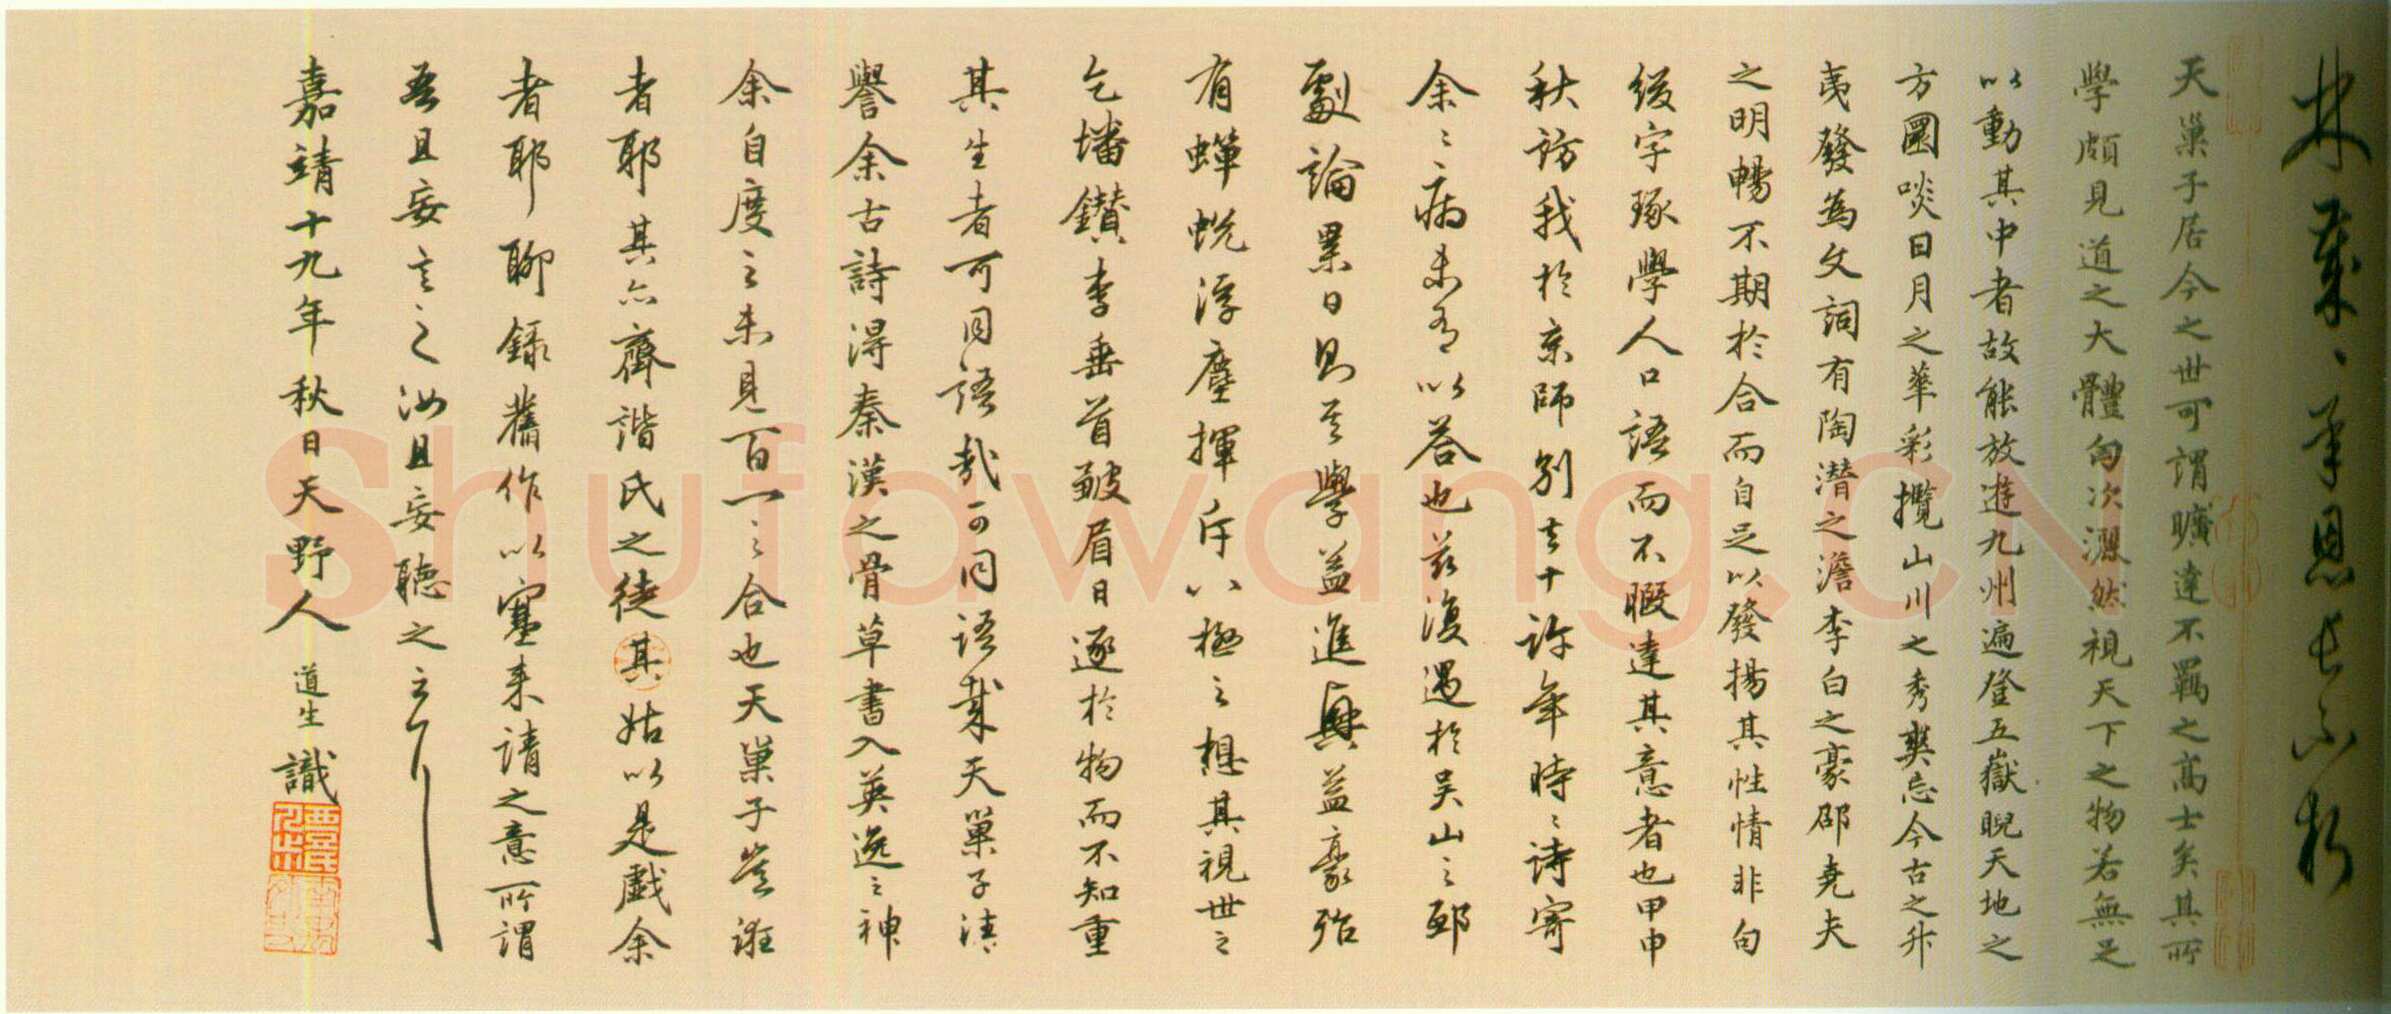 天巢子居今之世可謂曠達不羈之高士矣其所
學頗見道之大體匈次灑然視天下之物若無足
以動其中者故能放遊九州遍登五嶽睨天地之
方圓啖日月之華彩攬山川之秀爽忘今古之升
夷發為文詞有陶潛之澹李白之豪邵堯夫
之明暢不期於合而自足以發揚其性情非句
綴字琢學人口語而不暇達其意者也甲申
秋訪我於京師別去十許年時〻詩寄
余〻病未有以答也茲復遇於吳山之邸
劇論累日則其學益進興益豪殆
有蟬蛻浮塵揮斥八極之想其視世之
乞墦鑽李垂首皺眉日逐於物而不知重
其生者可同語哉可同語哉天巢子請
譽余古詩得秦漢之骨草書入英逸之神
余自度之未見百一之合也天巢子豈誑
者耶其亦齊諧氏之徒其姑以是戲余
者耶聊錄舊作以塞來請之意所謂
吾且妄言之汝且妄聽之云爾
嘉靖十九年秋日天野人道生識
shufawang.cn